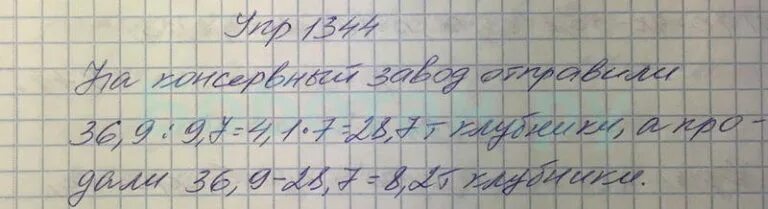 Упр 1344
На консервный завод отправили
36,9:9,7=4,1·7=28,7т клубники, а про-
дали 36,9-28,7=8,2т клубники.